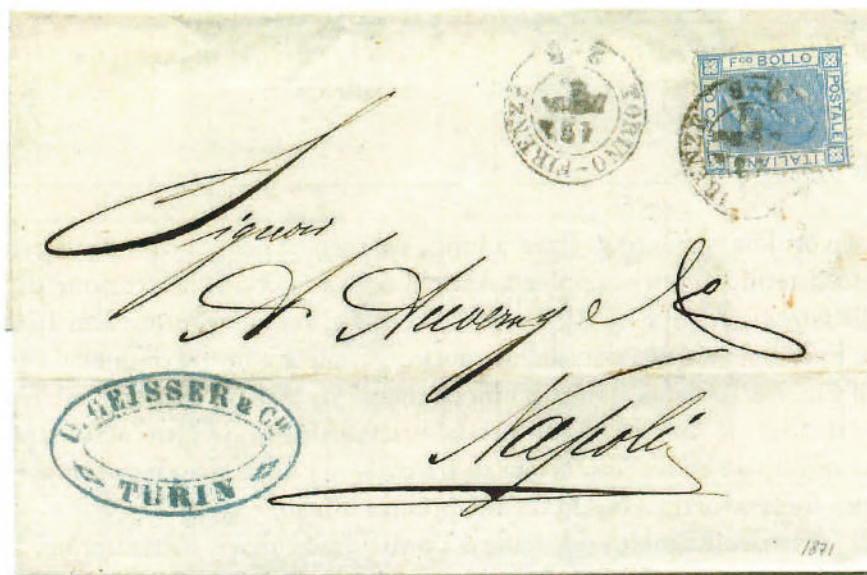 Fco BOLLO
POSTALE
ITALIANO
TORINO-FIRENZE
Signori
A. Auverny &
Napoli
U. GEISSER & Cie
TURIN
1871